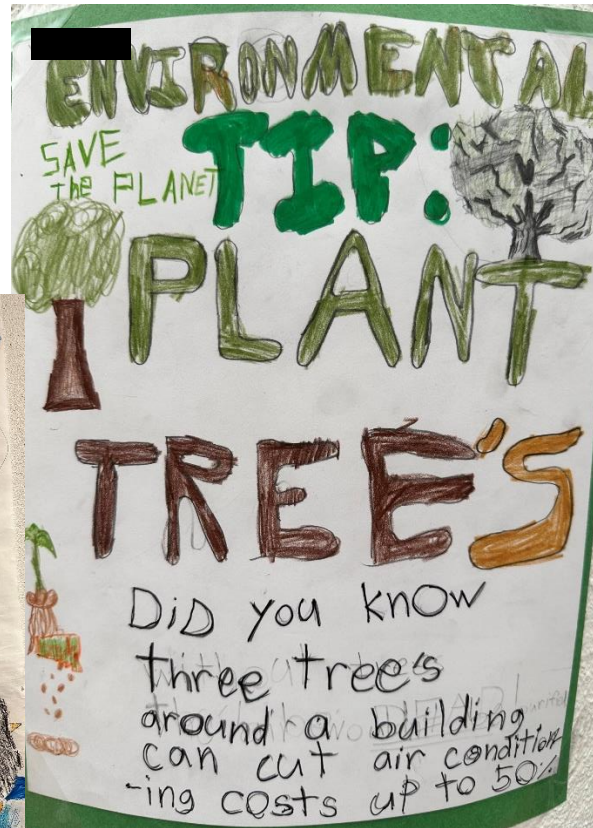 ENVIRONMENTAL
TIP:
SAVE
the PLANET
PLANT
TREE'S
DiD you know
three tree's
around a building
can cut air condition
-ing costs up to 50%